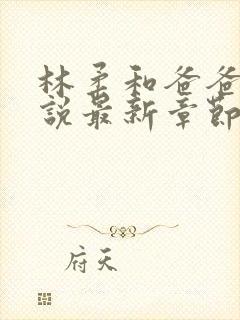 林柔和爸爸
說最新章節
府天